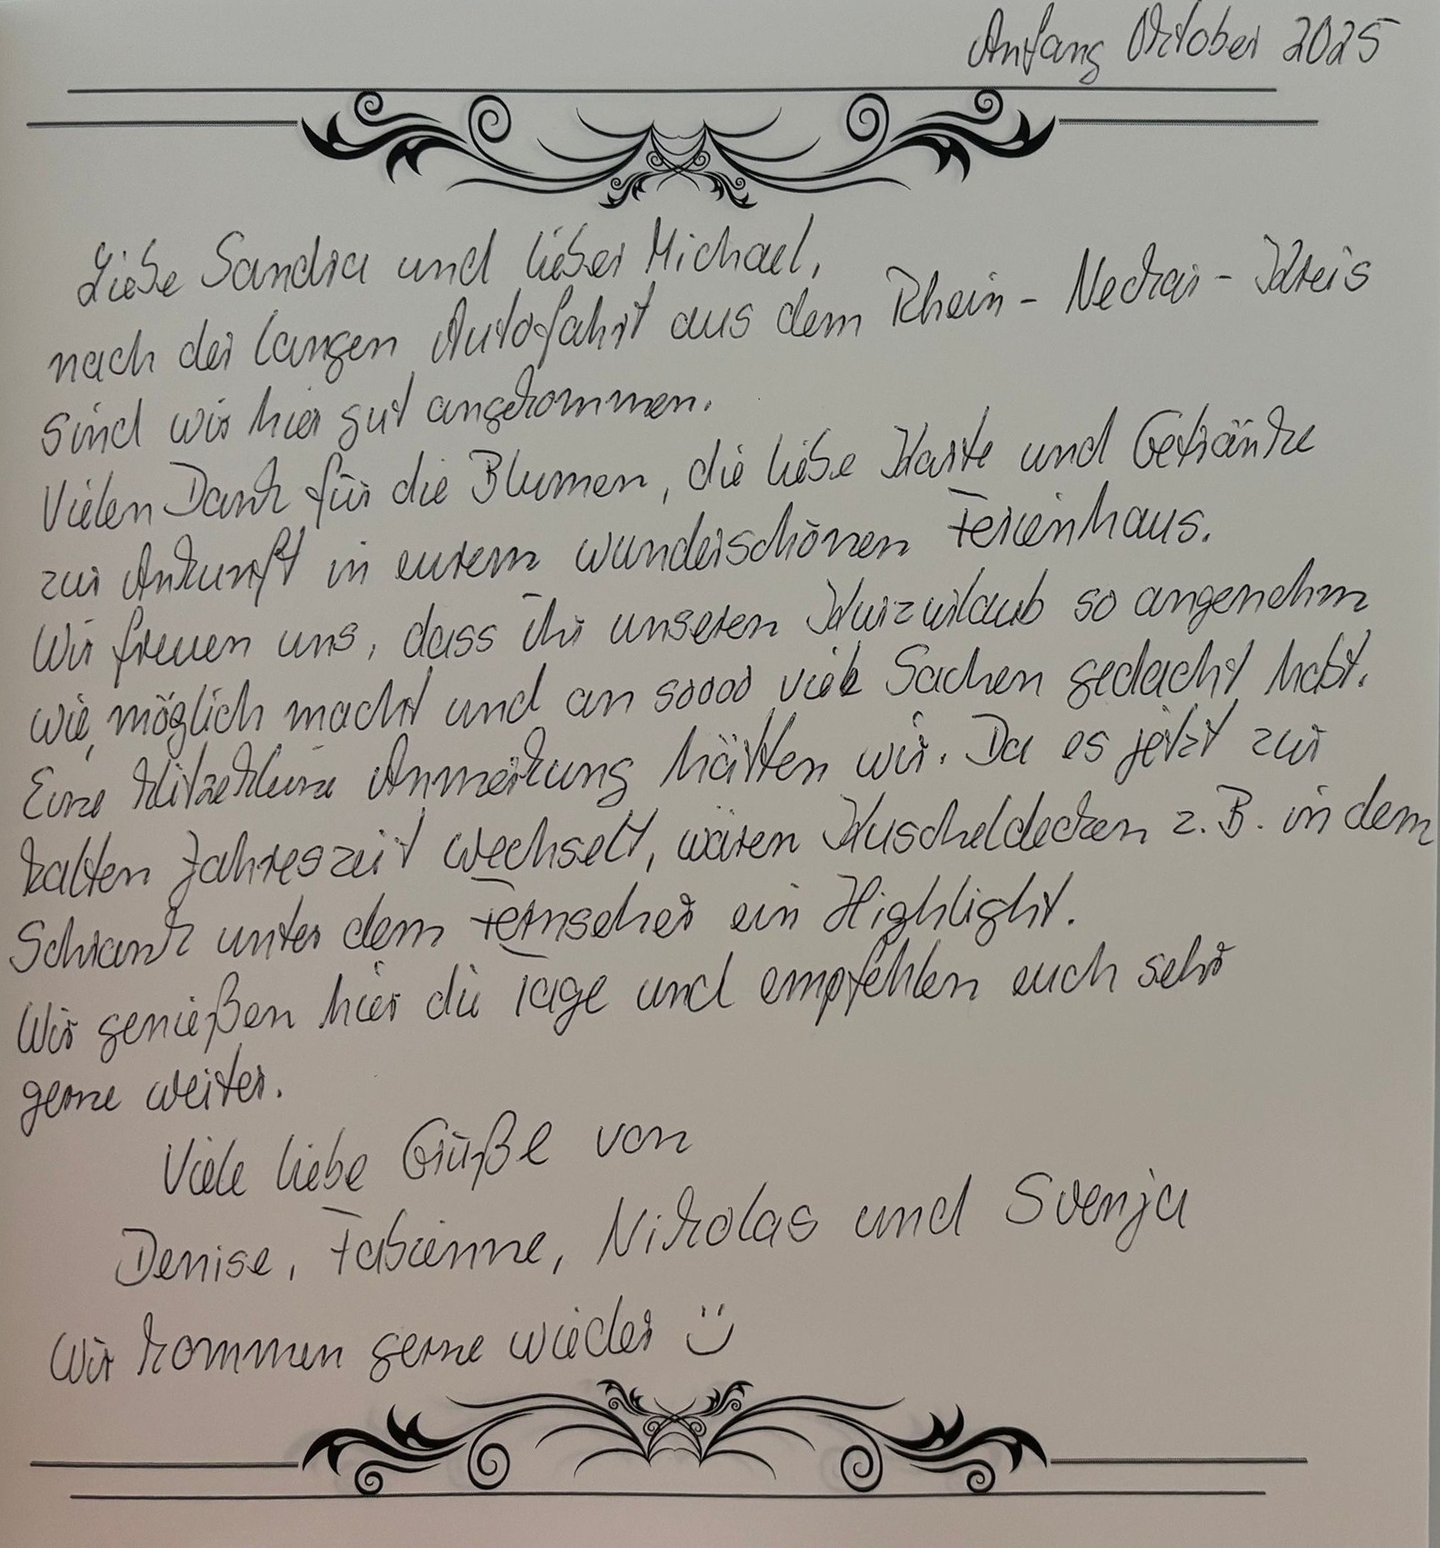 Anfang Oktober 2025
Liebe Sandra und lieber Michael,
nach der langen Autofahrt aus dem Rhein-Neckar-Kreis
sind wir hier gut angekommen.
Vielen Dank für die Blumen, die liebe Karte und Getränke
zur Ankunft in eurem wunderschönen Ferienhaus.
Wir freuen uns, dass ihr unseren Kurzurlaub so angenehm
wie möglich macht und an soooo viele Sachen gedacht habt.
Eine klitzekleine Anmerkung hätten wir. Da es jetzt zur
kalten Jahreszeit wechselt, wären Kuscheldecken z.B. in dem
Schrank unter dem Fernseher ein Highlight.
Wir genießen hier die Tage und empfehlen euch sehr
gerne weiter.
Viele liebe Grüße von
Denise, Fabienne, Nikolas und Svenja
Wir kommen gerne wieder :)